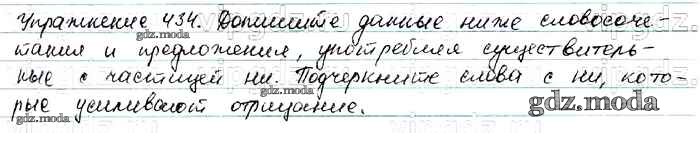 Упражнение 434. Допишите данные ниже словосоче-
тания и предложения, употребляя существитель-
ные с частицей ни. Подчеркните слова с ни, кото-
рые усиливают отрицание.
gdz.moda
gdz.moda
gdz.moda
gdz.moda